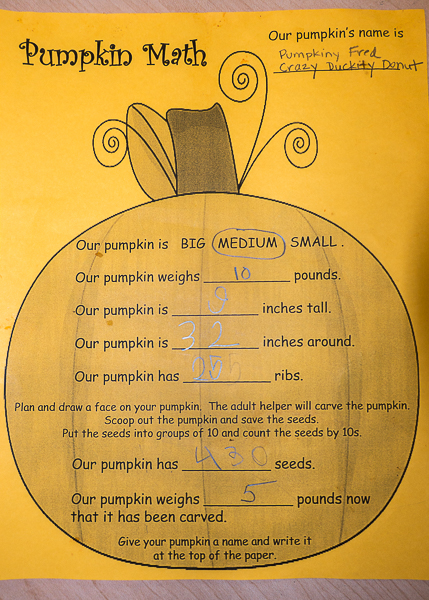 Pumpkin Math
Our pumpkin's name is
Pumpkiny Fred
Crazy Duckity Donut
Our pumpkin is BIG MEDIUM SMALL.
Our pumpkin weighs 10 pounds.
Our pumpkin is inches tall.
Our pumpkin is 32 inches around.
Our pumpkin has ribs.
Plan and draw a face on your pumpkin. The adult helper will carve the pumpkin.
Scoop out the pumpkin and save the seeds.
Put the seeds into groups of 10 and count the seeds by 10s.
Our pumpkin has 430 seeds.
Our pumpkin weighs 5 pounds now
that it has been carved.
Give your pumpkin a name and write it
at the top of the paper.